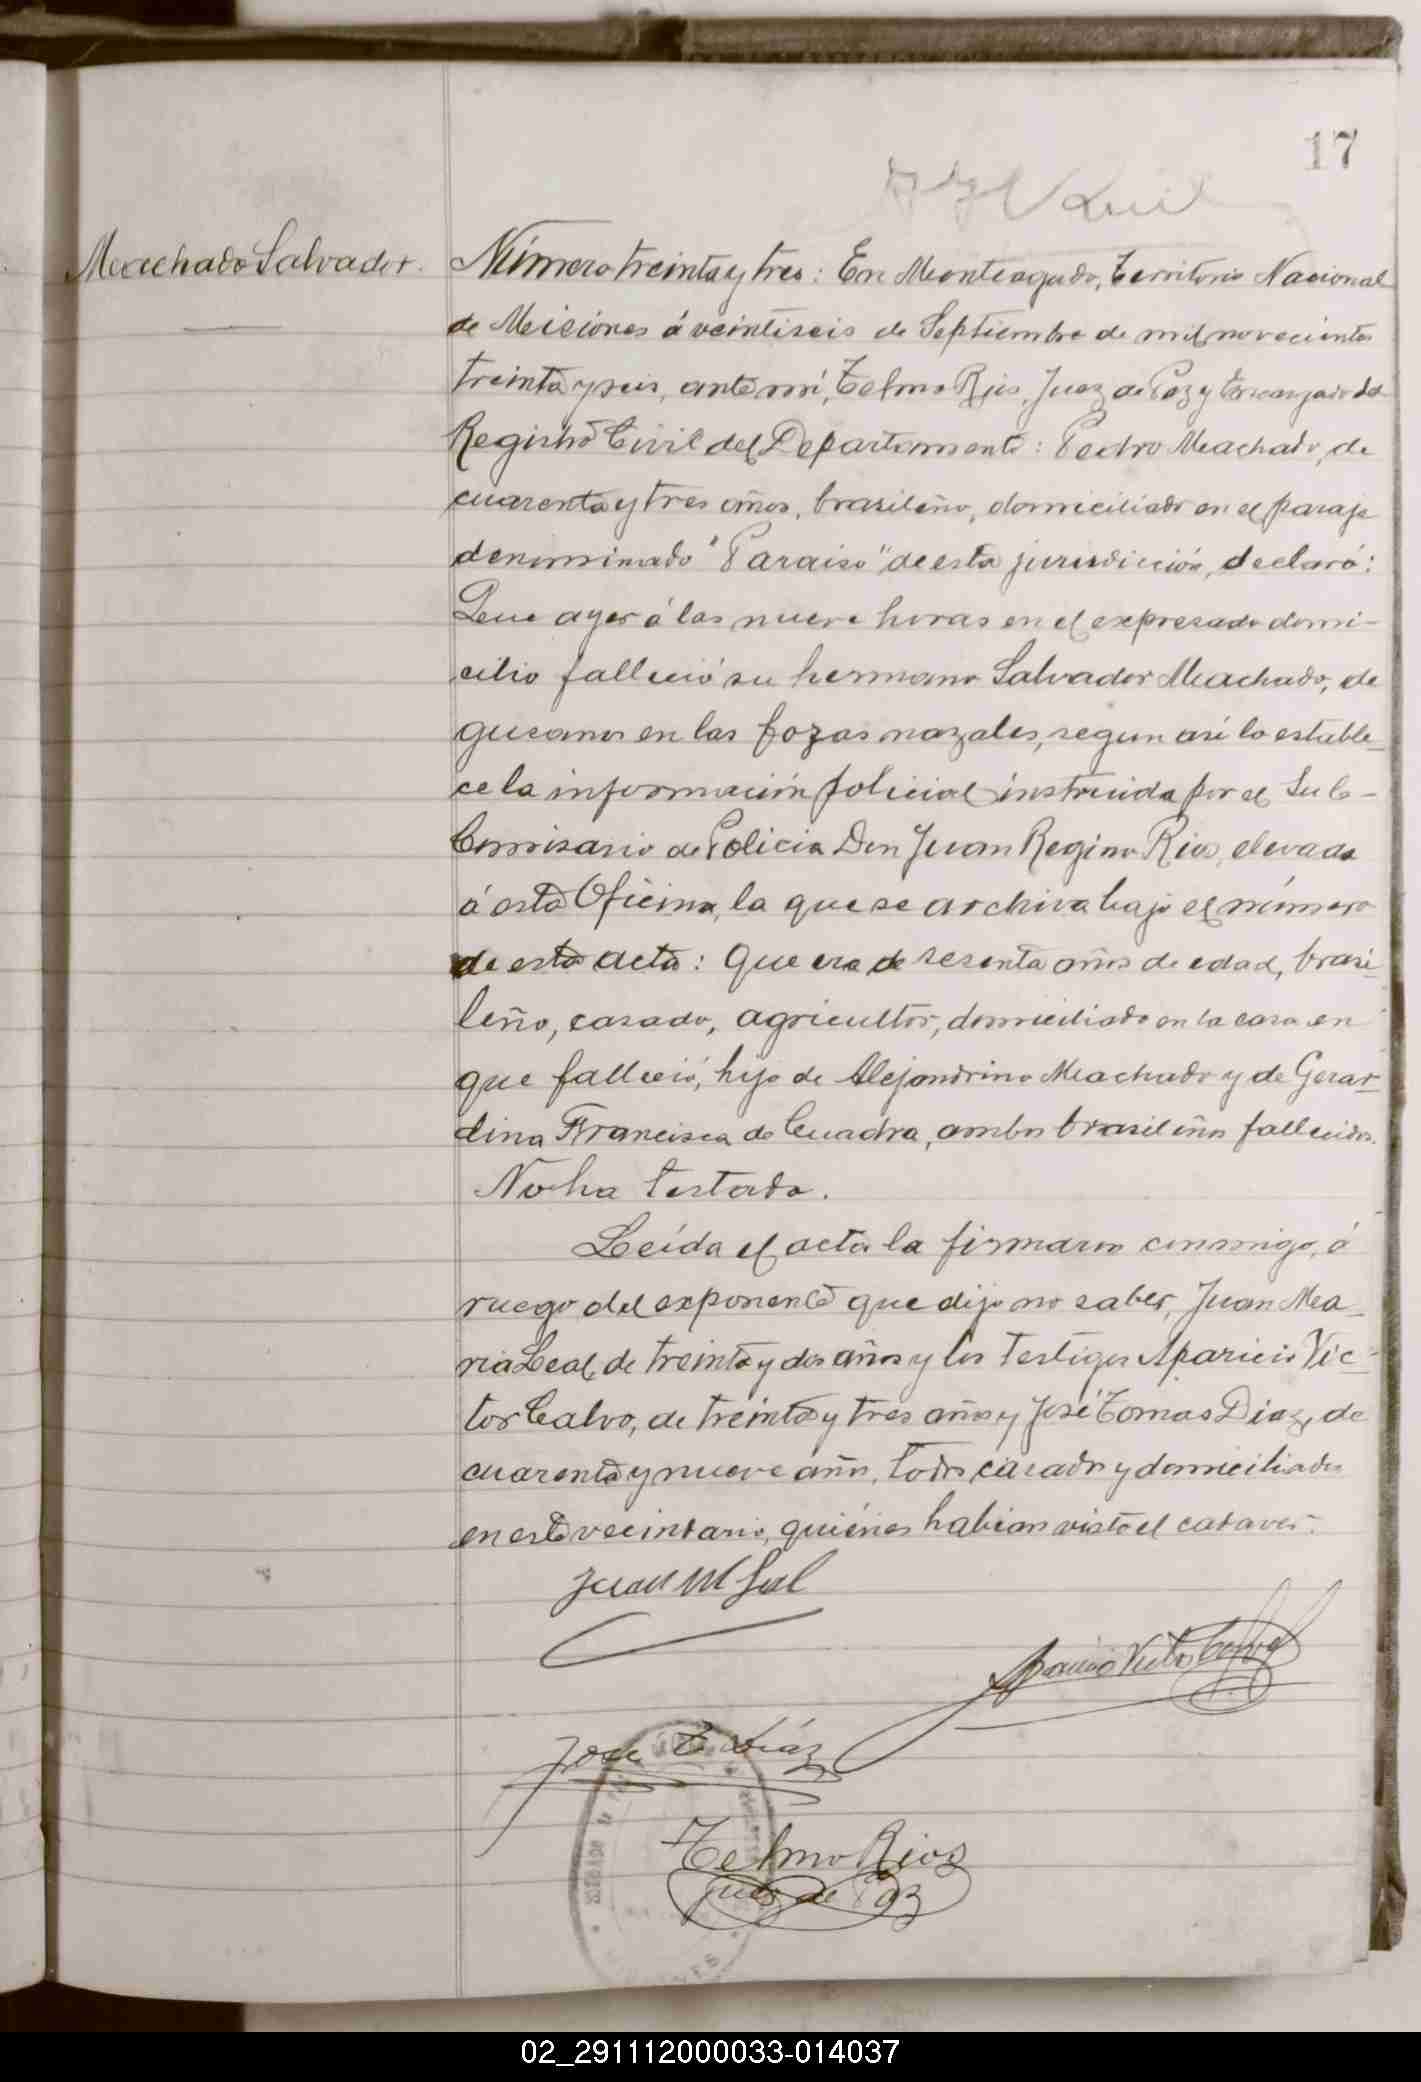 17
Machado Salvador.
Número treinta y tres: En Monteagudo, Territorio Nacional
de Misiones á veintiseis de Septiembre de mil novecientos
treinta y seis, ante mí, Telmo Rios, Juez de Paz y Encargado del
Registro Civil del Departamento: Pedro Machado, de
cuarenta y tres años, brasileño, domiciliado en el paraje
denominado "Paraiso" de esta jurisdicción, declaró:
Que ayer á las nueve horas en el expresado domi-
cilio falleció su hermano Salvador Machado, de
gusanos en las fozas nazales, segun asi lo estable-
ce la información policial instruida por el Sub-
Comisario de Policia Don Juan Regino Rios, elevada
á esta Oficina, la que se archiva bajo el número
de esta acta: Que era de sesenta años de edad, brasi-
leño, casado, agricultor, domiciliado en la casa en
que falleció, hijo de Alejandrino Machado y de Gerar-
dina Francisca de Cuadra, ambos brasileños fallecidos.
No ha testado.
Leída el acta la firmaron conmigo, á
ruego del exponente que dijo no saber, Juan Ma-
ria Leal, de treinta y dos años y los testigos Aparicio Vic-
tor Calvo, de treinta y tres años y José Tomas Diaz, de
cuarenta y nueve años, todos casados y domiciliados
en este vecindario, quiénes habian visto el cadaver.
Juan M Leal
Aparicio Victor Calvo
Jose T Díaz
Telmo Rios
Juez de Paz
02_291112000033-014037